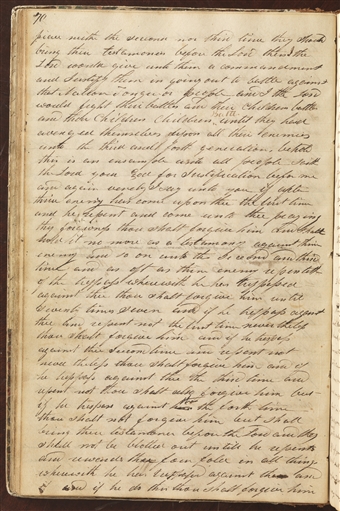 70
peace with the second nor third time they should
bring their testamonies before the Lord then the
Lord would give unto them a commandment
and Justify them in going out to battle against
that Nation Tongue or People and the Lord
would fight their battles and their Childrens battles
and their Childrens Childrens until they had
avenged themselves upon all their enemies
unto the third and forth generation, behold
this is an ensample unto all people saith
the Lord your God for Justification before me
and again verily I say unto you if after
thine enemy has come upon thee the first time
and he repent and come unto thee praying
thy forgivness thou shalt forgive him and shall
hold it no more as a testimony against thine
enemy and so on unto the second and third
time and as oft as thine enemy repenteth
of the trespass wherewith he has trespased
against thee thou shalt forgive him until
seventy times seven and if he trespass against
thee and repent not the first time nevertheless
thou shalt forgive him and if he trespass
against thee the second time and repent not
never theless thou shalt forgive him and if
he trespass against thee the third time and
repent not thou shalt also forgive him but
if he trespass against thee the forth time
thou shalt not forgive him but shall
bring these testamonies before the Lord and they
shall not be blotted out until he repents
and rewards thee four fold in all things
wherewith he has trespased against thee and
if he do this thou shalt forgive him